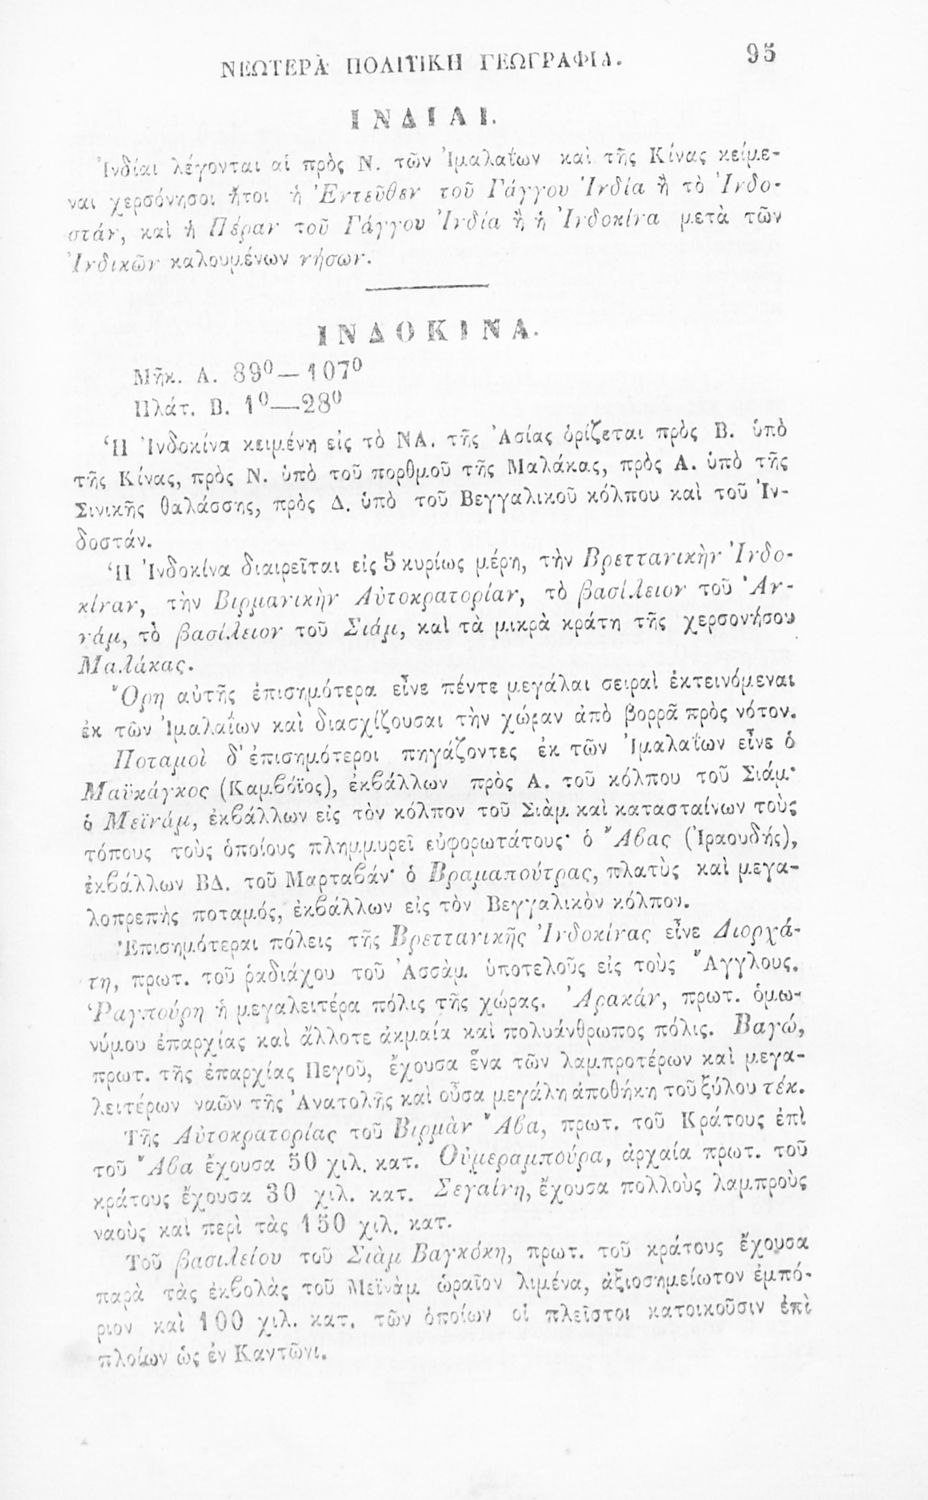 ΝΕΩΤΕΡΑ ΠΟΛΙΤΙΚΗ ΓΕΩΓΡΑΦΙΑ. 95
ΙΝΔΙΑΙ.
Ἰνδίαι λέγονται αἱ πρὸς Ν. τῶν Ἰμαλαΐων καὶ τῆς Κίνας κείμε-
ναι χερσόνησοι ἤτοι ἡ Ἐντεῦθεν τοῦ Γάγγου Ἰνδία ἢ τὸ Ἰνδο-
στάν, καὶ ἡ Πέραν τοῦ Γάγγου Ἰνδία ἢ ἡ Ἰνδοκίνα μετὰ τῶν
Ἰνδικῶν καλουμένων νήσων.
ΙΝΔΟΚΙΝΑ.
Μῆκ. Α. 89⁰—107⁰
Πλάτ. Β. 1⁰—28⁰
Ἡ Ἰνδοκίνα κειμένη εἰς τὸ ΝΑ. τῆς Ἀσίας ὁρίζεται πρὸς Β. ὑπὸ
τῆς Κίνας, πρὸς Ν. ὑπὸ τοῦ πορθμοῦ τῆς Μαλάκας, πρὸς Α. ὑπὸ τῆς
Σινικῆς θαλάσσης, πρὸς Δ. ὑπὸ τοῦ Βεγγαλικοῦ κόλπου καὶ τοῦ Ἰν-
δοστάν.
Ἡ Ἰνδοκίνα διαιρεῖται εἰς 5 κυρίως μέρη, τὴν Βρεττανικὴν Ἰνδο-
κίναν, τὴν Βιρμανικὴν Αὐτοκρατορίαν, τὸ βασίλειον τοῦ Ἀν-
νάμ, τὸ βασίλειον τοῦ Σιάμ, καὶ τὰ μικρὰ κράτη τῆς χερσονήσου
Μαλάκας.
Ὄρη αὐτῆς ἐπισημότερα εἶνε πέντε μεγάλαι σειραὶ ἐκτεινόμεναι
ἐκ τῶν Ἰμαλαΐων καὶ διασχίζουσαι τὴν χώραν ἀπὸ βορρᾶ πρὸς νότον.
Ποταμοὶ δ' ἐπισημότεροι πηγάζοντες ἐκ τῶν Ἰμαλαΐων εἶνε ὁ
Μαϊκάγκος (Καμβόϊος), ἐκβάλλων πρὸς Α. τοῦ κόλπου τοῦ Σιάμ·
ὁ Μεϊνάμ, ἐκβάλλων εἰς τὸν κόλπον τοῦ Σιὰμ καὶ κατασταίνων τοὺς
τόπους τοὺς ὁποίους πλημμυρεῖ εὐφορωτάτους· ὁ Ἄβας (Ἰραουδής),
ἐκβάλλων ΒΔ. τοῦ Μαρταβάν· ὁ Βραμαπούτρας, πλατὺς καὶ μεγα-
λοπρεπὴς ποταμός, ἐκβάλλων εἰς τὸν Βεγγαλικὸν κόλπον.
Ἐπισημότεραι πόλεις τῆς Βρεττανικῆς Ἰνδοκίνας εἶνε Διορχά-
τη, πρωτ. τοῦ ῥαδιάχου τοῦ Ἀσσὰμ ὑποτελοῦς εἰς τοὺς Ἄγγλους.
Ῥαγπούρη ἡ μεγαλειτέρα πόλις τῆς χώρας. Ἀρακάν, πρωτ. ὁμω-
νύμου ἐπαρχίας καὶ ἄλλοτε ἀκμαία καὶ πολυάνθρωπος πόλις. Βαγώ,
πρωτ. τῆς ἐπαρχίας Πεγοῦ, ἔχουσα ἕνα τῶν λαμπροτέρων καὶ μεγα-
λειτέρων ναῶν τῆς Ἀνατολῆς καὶ οὖσα μεγάλη ἀποθήκη τοῦ ξύλου τέκ.
Τῆς Αὐτοκρατορίας τοῦ Βιρμὰν Ἄβα, πρωτ. τοῦ Κράτους ἐπὶ
τοῦ Ἄβα ἔχουσα 50 χιλ. κατ. Οὐμεραμπούρα, ἀρχαία πρωτ. τοῦ
κράτους ἔχουσα 30 χιλ. κατ. Σεγαίνη, ἔχουσα πολλοὺς λαμπροὺς
ναοὺς καὶ περὶ τὰς 150 χιλ. κατ.
Τοῦ βασιλείου τοῦ Σιὰμ Βαγκόκη, πρωτ. τοῦ κράτους ἔχουσα
παρὰ τὰς ἐκβολὰς τοῦ Μεϊνὰμ ὡραῖον λιμένα, ἀξιοσημείωτον ἐμπό-
ριον καὶ 100 χιλ. κατ. τῶν ὁποίων οἱ πλεῖστοι κατοικοῦσιν ἐπὶ
πλοίων ὡς ἐν Καντῶνι.